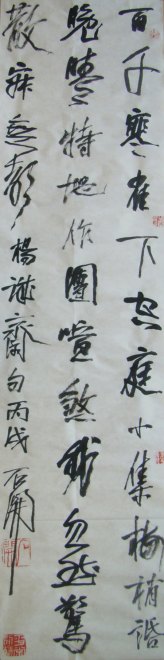 百千寒雀下空庭小集梅梢話
晚晴特地作團喧煞我忽然驚
散寂無聲楊誠齋句丙戌石開